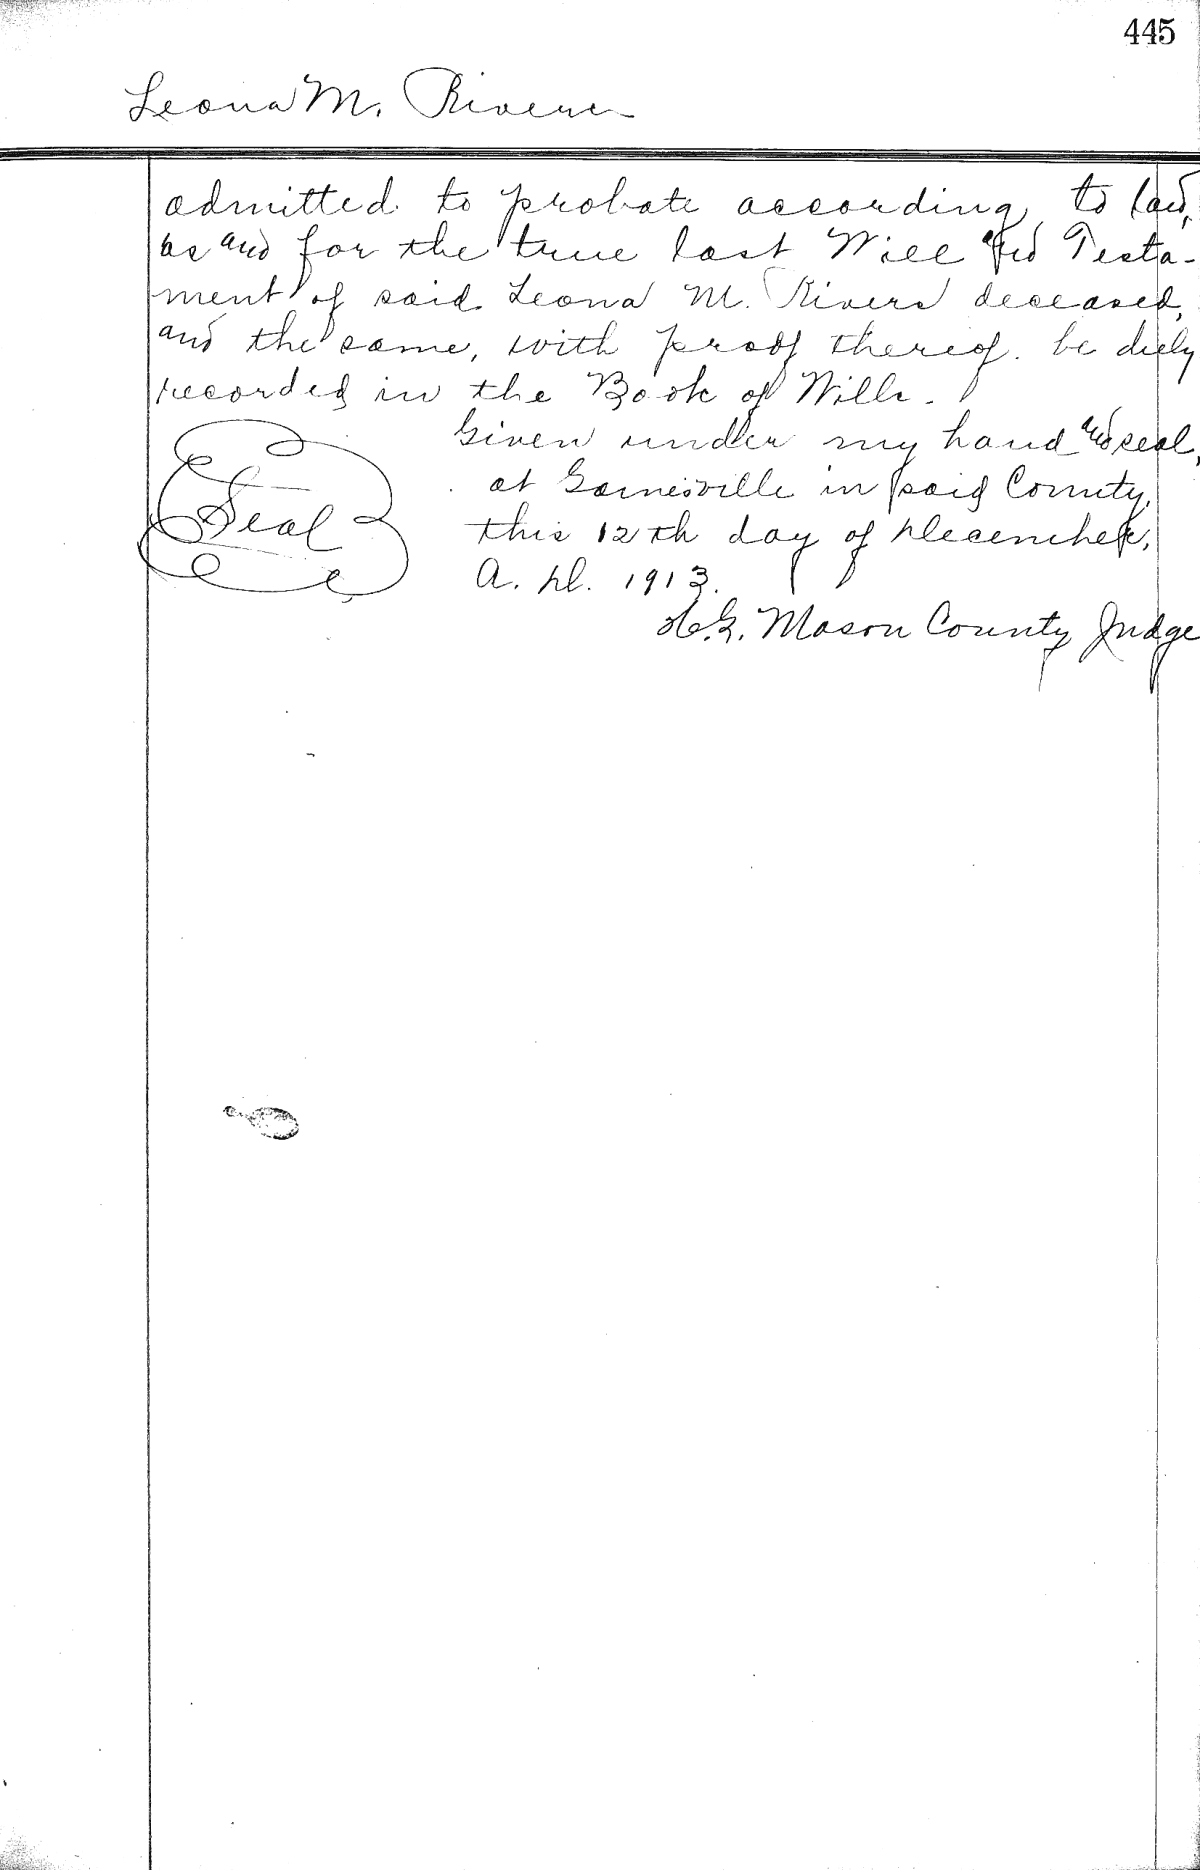 445
Leona M. Rivers
admitted to probate according to law,
as and for the true last Will and Testa-
ment of said Leona M. Rivers deceased,
and the same, with proof thereof. be duly
recorded in the Book of Wills.
Given under my hand and seal,
at Gainesville in said County,
Seal
this 12th day of December,
A. D. 1913.
H. G. Mason County Judge